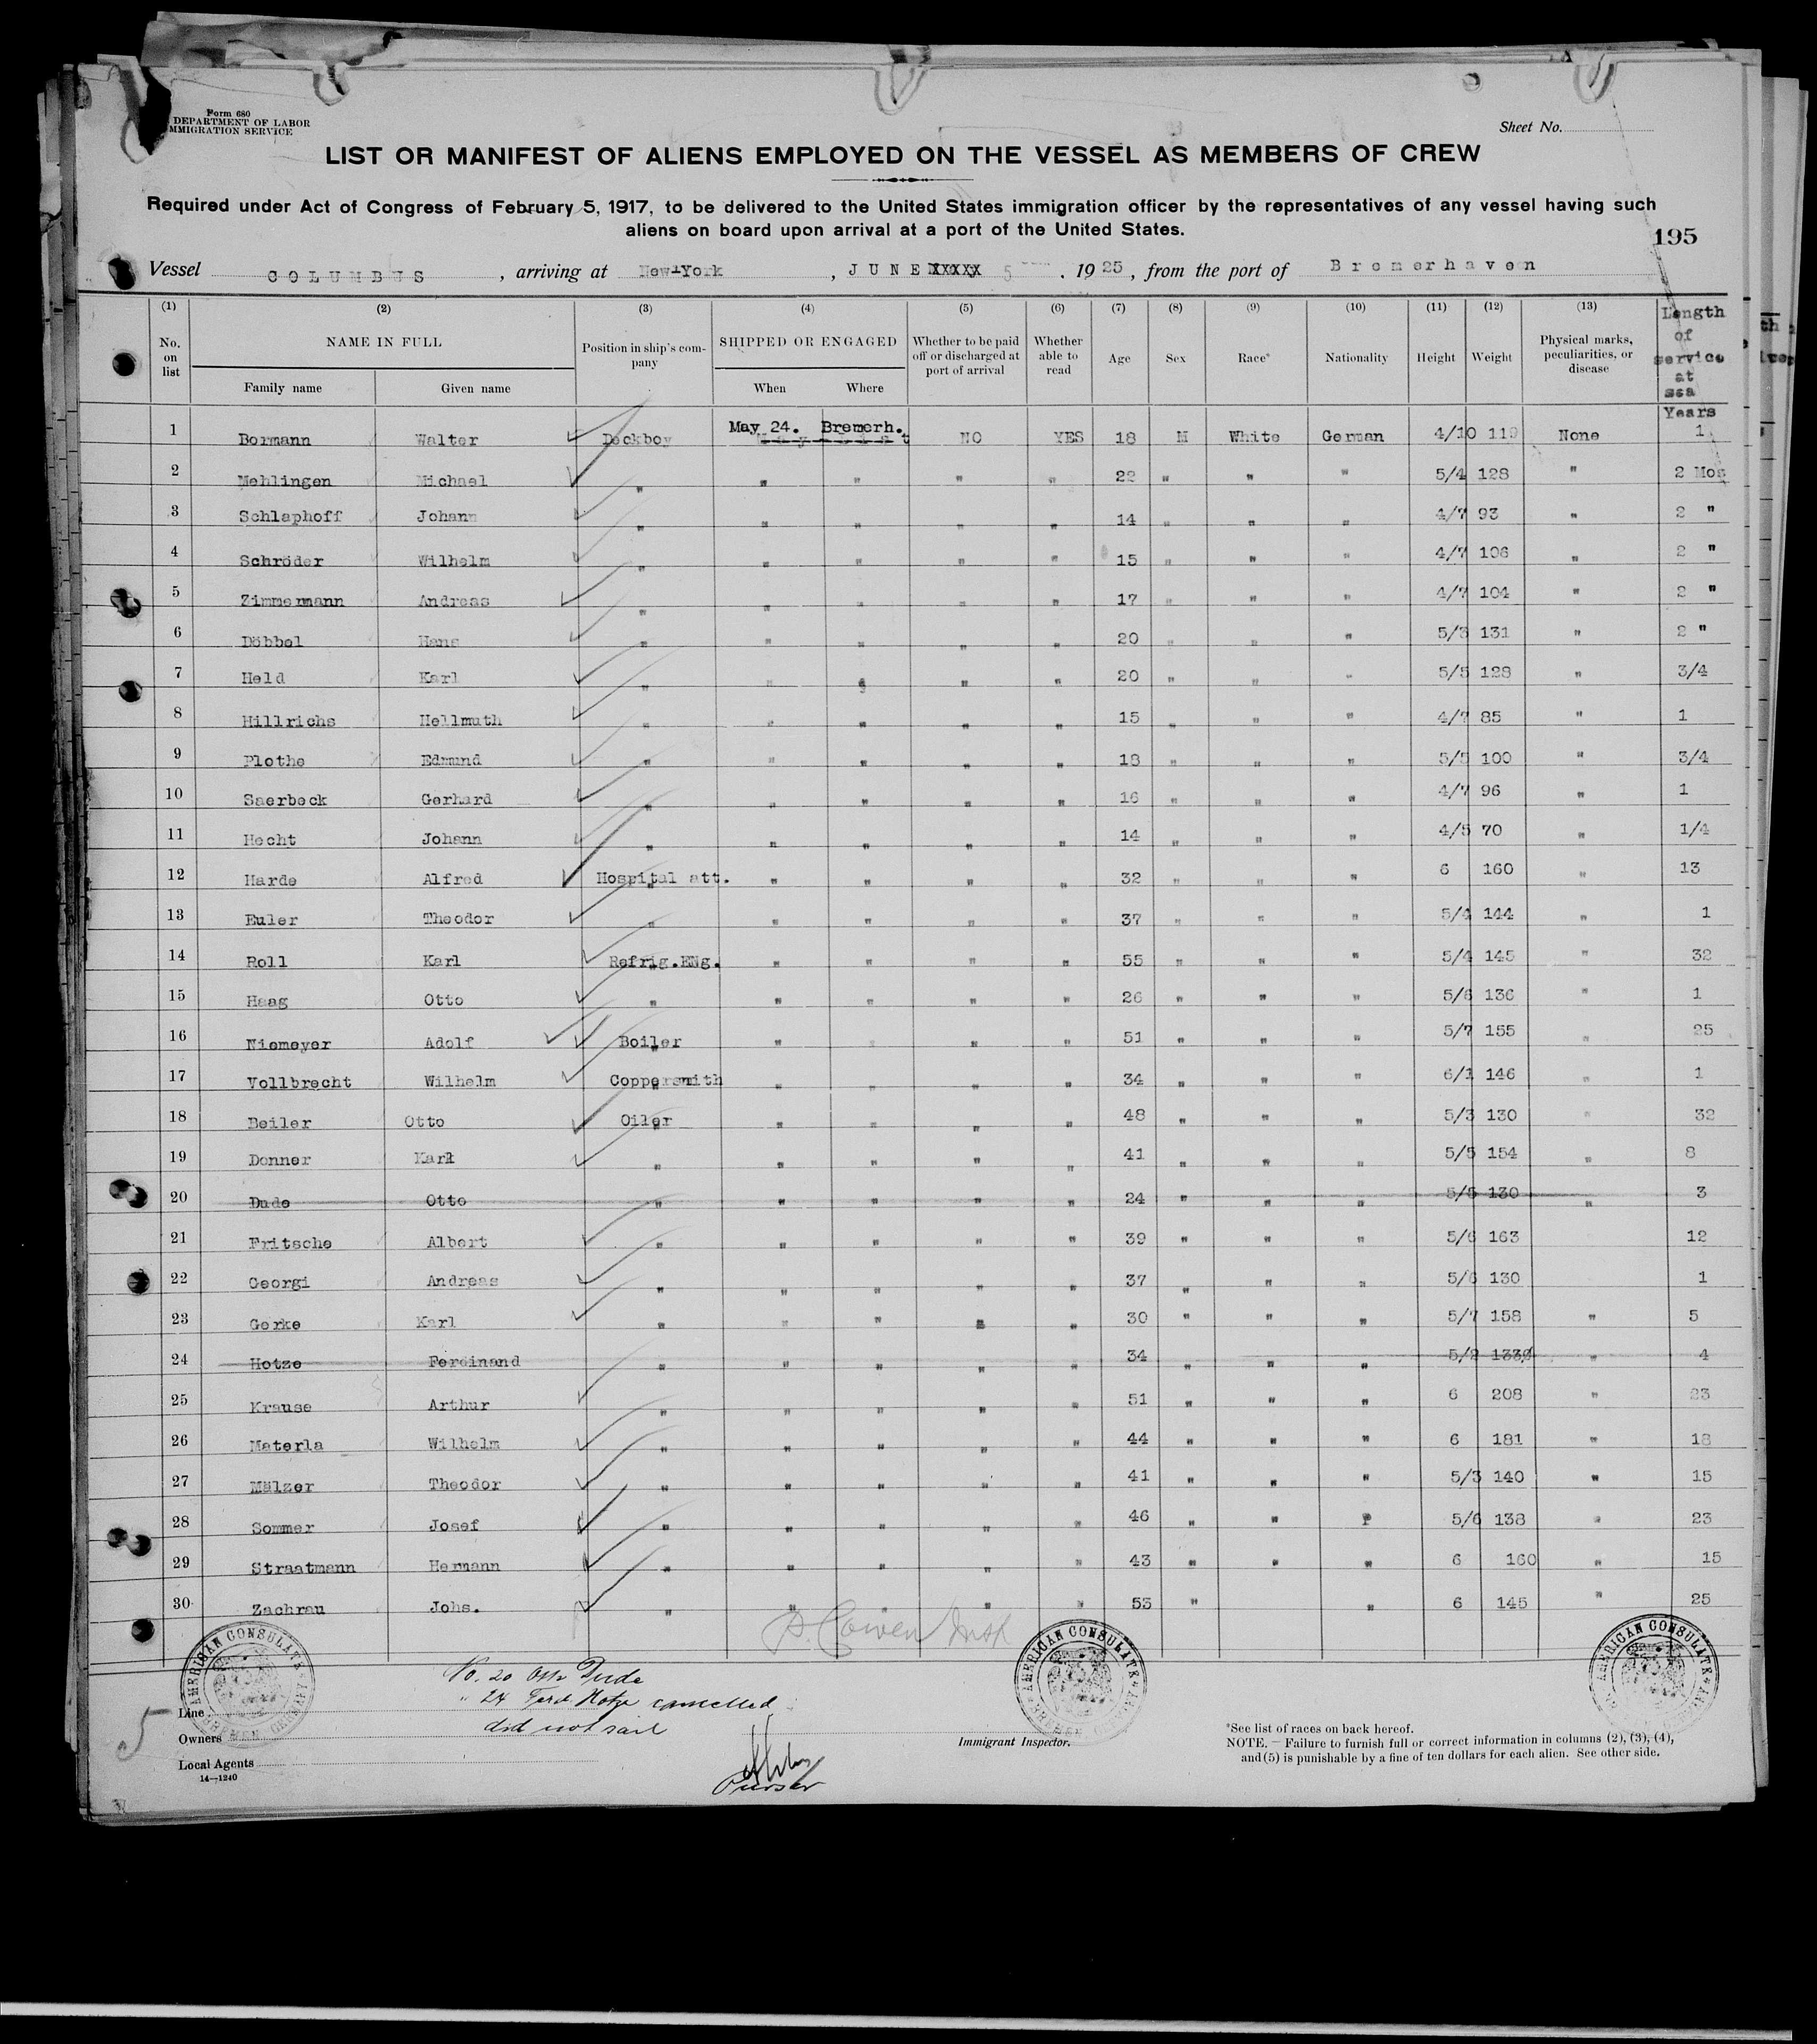 Form 680
DEPARTMENT OF LABOR
IMMIGRATION SERVICE
Sheet No.
LIST OR MANIFEST OF ALIENS EMPLOYED ON THE VESSEL AS MEMBERS OF CREW
Required under Act of Congress of February 5, 1917, to be delivered to the United States immigration officer by the representatives of any vessel having such
aliens on board upon arrival at a port of the United States.
195
Vessel COLUMBUS, arriving at New-York, JUNE XXXXX 5, 1925, from the port of Bremerhaven
(1) (2) (3) (4) (5) (6) (7) (8) (9) (10) (11) (12) (13) Length of service at sea
No. on list NAME IN FULL Position in ship's company SHIPPED OR ENGAGED Whether to be paid off or discharged at port of arrival Whether able to read Age Sex Race* Nationality Height Weight Physical marks, peculiarities, or disease
Family name Given name When Where
Years
1 Bormann Walter Deckboy May 24. Bremerh. NO YES 18 M White German 4/10 119 None 1
2 Mehlingen Michael " " " " " 22 " " " 5/4 128 " 2 Mos
3 Schlaphoff Johann " " " " " 14 " " " 4/7 93 " 2 "
4 Schröder Wilhelm " " " " " 15 " " " 4/7 106 " 2 "
5 Zimmermann Andreas " " " " " 17 " " " 4/7 104 " 2 "
6 Döbbel Hans " " " " " 20 " " " 5/3 131 " 2 "
7 Held Karl " " " " " 20 " " " 5/5 128 " 3/4
8 Hillrichs Hellmuth " " " " " 15 " " " 4/7 85 " 1
9 Plothe Edmund " " " " " 18 " " " 5/5 100 " 3/4
10 Saerbeck Gerhard " " " " " 16 " " " 4/7 96 " 1
11 Hecht Johann " " " " " 14 " " " 4/5 70 " 1/4
12 Harde Alfred Hospital att. " " " " 32 " " " 6 160 " 13
13 Euler Theodor " " " " " 37 " " " 5/4 144 " 1
14 Roll Karl Refrig.ENg. " " " " 55 " " " 5/4 145 " 32
15 Haag Otto " " " " " 26 " " " 5/6 136 " 1
16 Niemeyer Adolf Boiler " " " " 51 " " " 5/7 155 " 25
17 Vollbrecht Wilhelm Coppersmith " " " " 34 " " " 6/1 146 " 1
18 Beiler Otto Oiler " " " " 48 " " " 5/3 130 " 32
19 Donner Karl " " " " " 41 " " " 5/5 154 " 8
20 Dude Otto " " " " " 24 " " " 5/5 130 " 3
21 Fritsche Albert " " " " " 39 " " " 5/6 163 12
22 Georgi Andreas " " " " " 37 " " " 5/6 130 1
23 Gerke Karl " " " " " 30 " " " 5/7 158 " 5
24 Hotze Ferdinand " " " " " 34 " " " 5/2 133 " 4
25 Krause Arthur " " " " " 51 " " " 6 208 " 23
26 Materla Wilhelm " " " " " 44 " " " 6 181 " 18
27 Mälzer Theodor " " " " " 41 " " " 5/3 140 " 15
28 Sommer Josef " " " " " 46 " " " 5/6 138 " 23
29 Straatmann Hermann " " " " " 43 " " " 6 160 " 15
30 Zachrau Johs. " " " " " 53 " " 6 145 " 25
Cowen Insp
AMERICAN CONSULATE BREMEN
AMERICAN CONSULATE BREMEN
AMERICAN CONSULATE
No. 20 Otto Dude
" 24 Ferd Hotze cancelled
did not sail
Purser
5
Line
Owners
Local Agents
14—1240
Immigrant Inspector.
*See list of races on back hereof.
NOTE. — Failure to furnish full or correct information in columns (2), (3), (4),
and (5) is punishable by a fine of ten dollars for each alien. See other side.